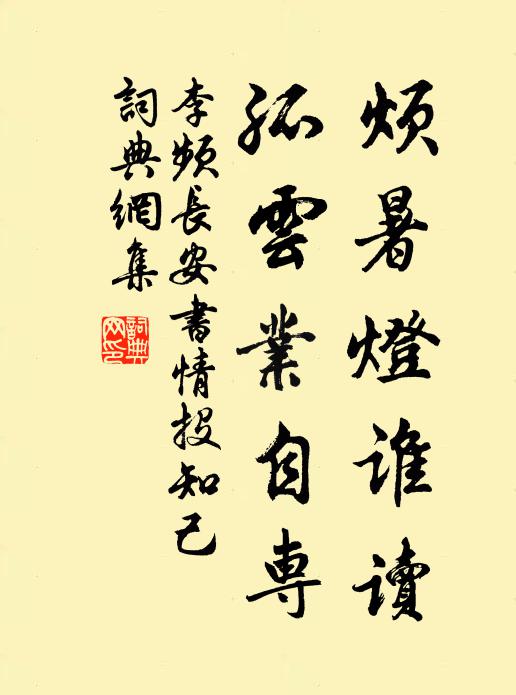 煩暑燈誰讀
孤雲業自專
李頻長安書情投知己
詞典網集
詞典網印